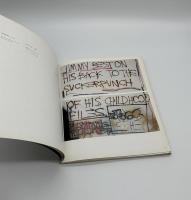 JIMMY BEST ON
HIS BACK TO THE
SUCKERPUNCH
OF HIS CHILDHOOD
FILES